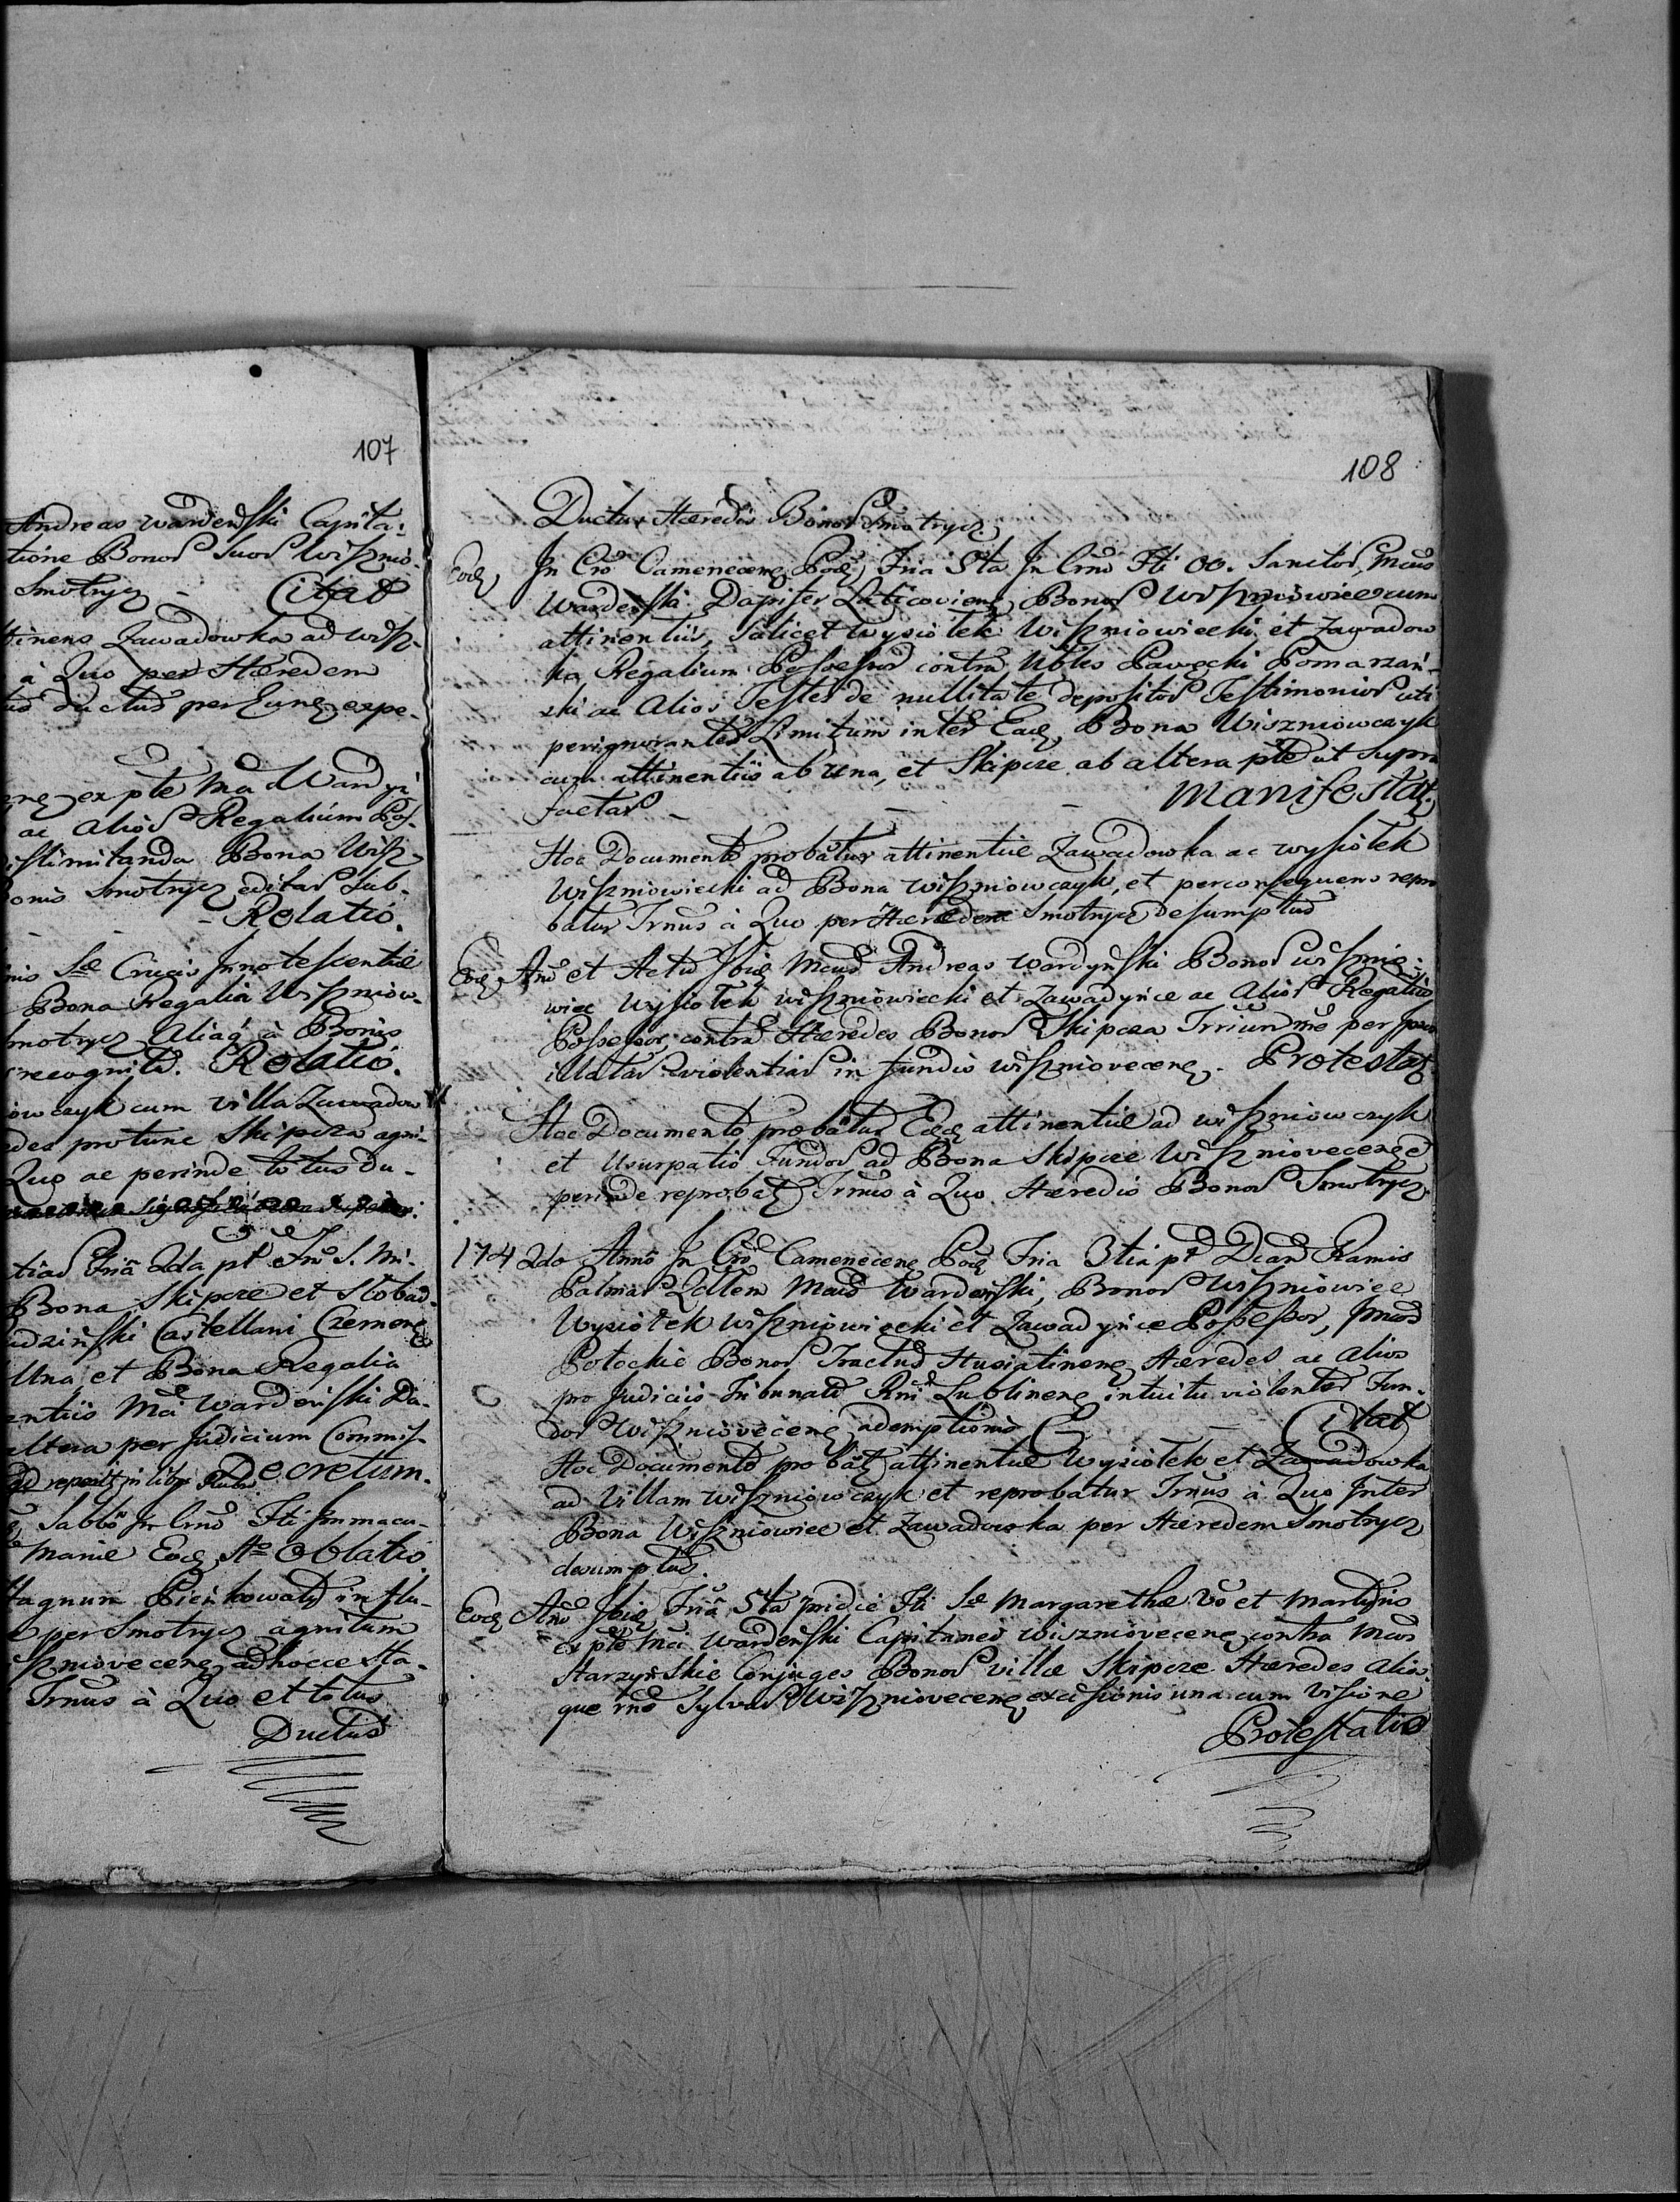 107
Andreas Wardenski Capita-
tione Bonor Suor Wisznio-
Smotrycz - Citat
ttinens Zawadowka ad Wisz-
à Quo per Hæredem
ductus per Eunq expe-
ex pte Mci Wardyń
ac alior Regalium Pos-
istimitanda Bona Wisz
onis Smotrycz editar Sub-
- Relatio.
nis Sæ Crucis Innotescentiæ
Bona Regalia Wiszniow-
Smotrycz Aliaq à Bonis
recognita. Relatio.
iowczyk cum villa Zawadow
edes protunc Skipcza agni-
Quo ac perinde totus du-
tias Friâ 2da pt Fm S. Mi-
Bona Skipcze et Slobod-
udziński Castellani Czemene
Una et Bona Regalia
entiis Mci Wardenski Da-
altera per Judicium Commis-
reperit in libr Decretum.
Sabbo In Crno Fti Immacu-
Mariæ Eodq Ao Oblatio.
Stagnum Pieńkowatd in flu-
e per Smotrycz agnitum
szniovecenq adhocce sta-
Trnus à Quo et totus
Ductus
108
Ductus Hæredis Bonor Smotrycz
Eodq In Cro Camenecenq Podq Fria 5ta In Crno Fti OO. Sanctor Mcus
Wardenski Dapifer Laticoviensq Bonor Wiszniowiec cum
attinentiis, Scilicet Wysiolek Wiszniowiecki et Zawadow
ka Regalium Possessor contra Nbles Pawęcki Pomarzań-
ski ac Alios Testes de nullitate depositor Testimonior uti
perignorantes Limitum inter Eadq Bona Wiszniowczyk
cum attinentiis ab una, et Skipcze ab altera pte ut supra
factar - - - Manifestat.
Hoc Documento probatur attinentiæ Zawadowka ac Wysiolek
Wiszniowiecki ad Bona Wiszniowczyk, et perconsequens repro
batur Trnus à Quo per Hæredem Smotrycz Desumptus
Eodq Ano et Actu Ibidq Mcus Andreas Wardyński Bonor Wisznio-
wiec Wysiolek Wiszniowiecki et Zawadyńce ac Alior Regaliu
Possessor, contra Hæredes Bonor Skipcza rne per
illatar violentiar in fundo Wisznioveceneq. Protestatq
Hoc Documento probatur Eædq attinentiæ ad Wiszniowczyk
et Usurpatio Fundor ad Bona Skipcze Wiszniovecene
perinde reprobatq Trnus à Quo Hæredis Bonor Smotrycz
1742do Anno In Cro Camenecenq Podq Fria 3tia pt Dcam Ramis
Palmar Qdtem Mcus Wardenski, Bonor Wiszniowiec
Wysiolek Wiszniowiecki et Zawadyńce Possessor, Jmos
Potockie Bonor Tractus Husiatinenq Hæredes ac Alios
pro Judiciis Tribunalis Rni Lublinenq intuitu violenter Fun-
dor Wisznioveceneq ademptionis - Citat
Hoc Documento probatq attinentiæ Wysiolek et Zawadowka
ad Villam Wiszniowczyk et reprobatur Trnus à Quo Inter
Bona Wiszniowiec et Zawadowka per Hæredem Smotrycz
desumptus.
Eodq Ano Ibidq Friâ 5ta pridie Fti Sæ Margarethæ Vo et Martyris
ex pte Mci Wardenski Capitanei Wiszniovecenq contra Mcos
Starzyńskie Conjuges Bonor villæ Skipcze Hæredes Alios
que rno Sylvar Wiszniovecenq excisionis una cum Visione
Protestatio